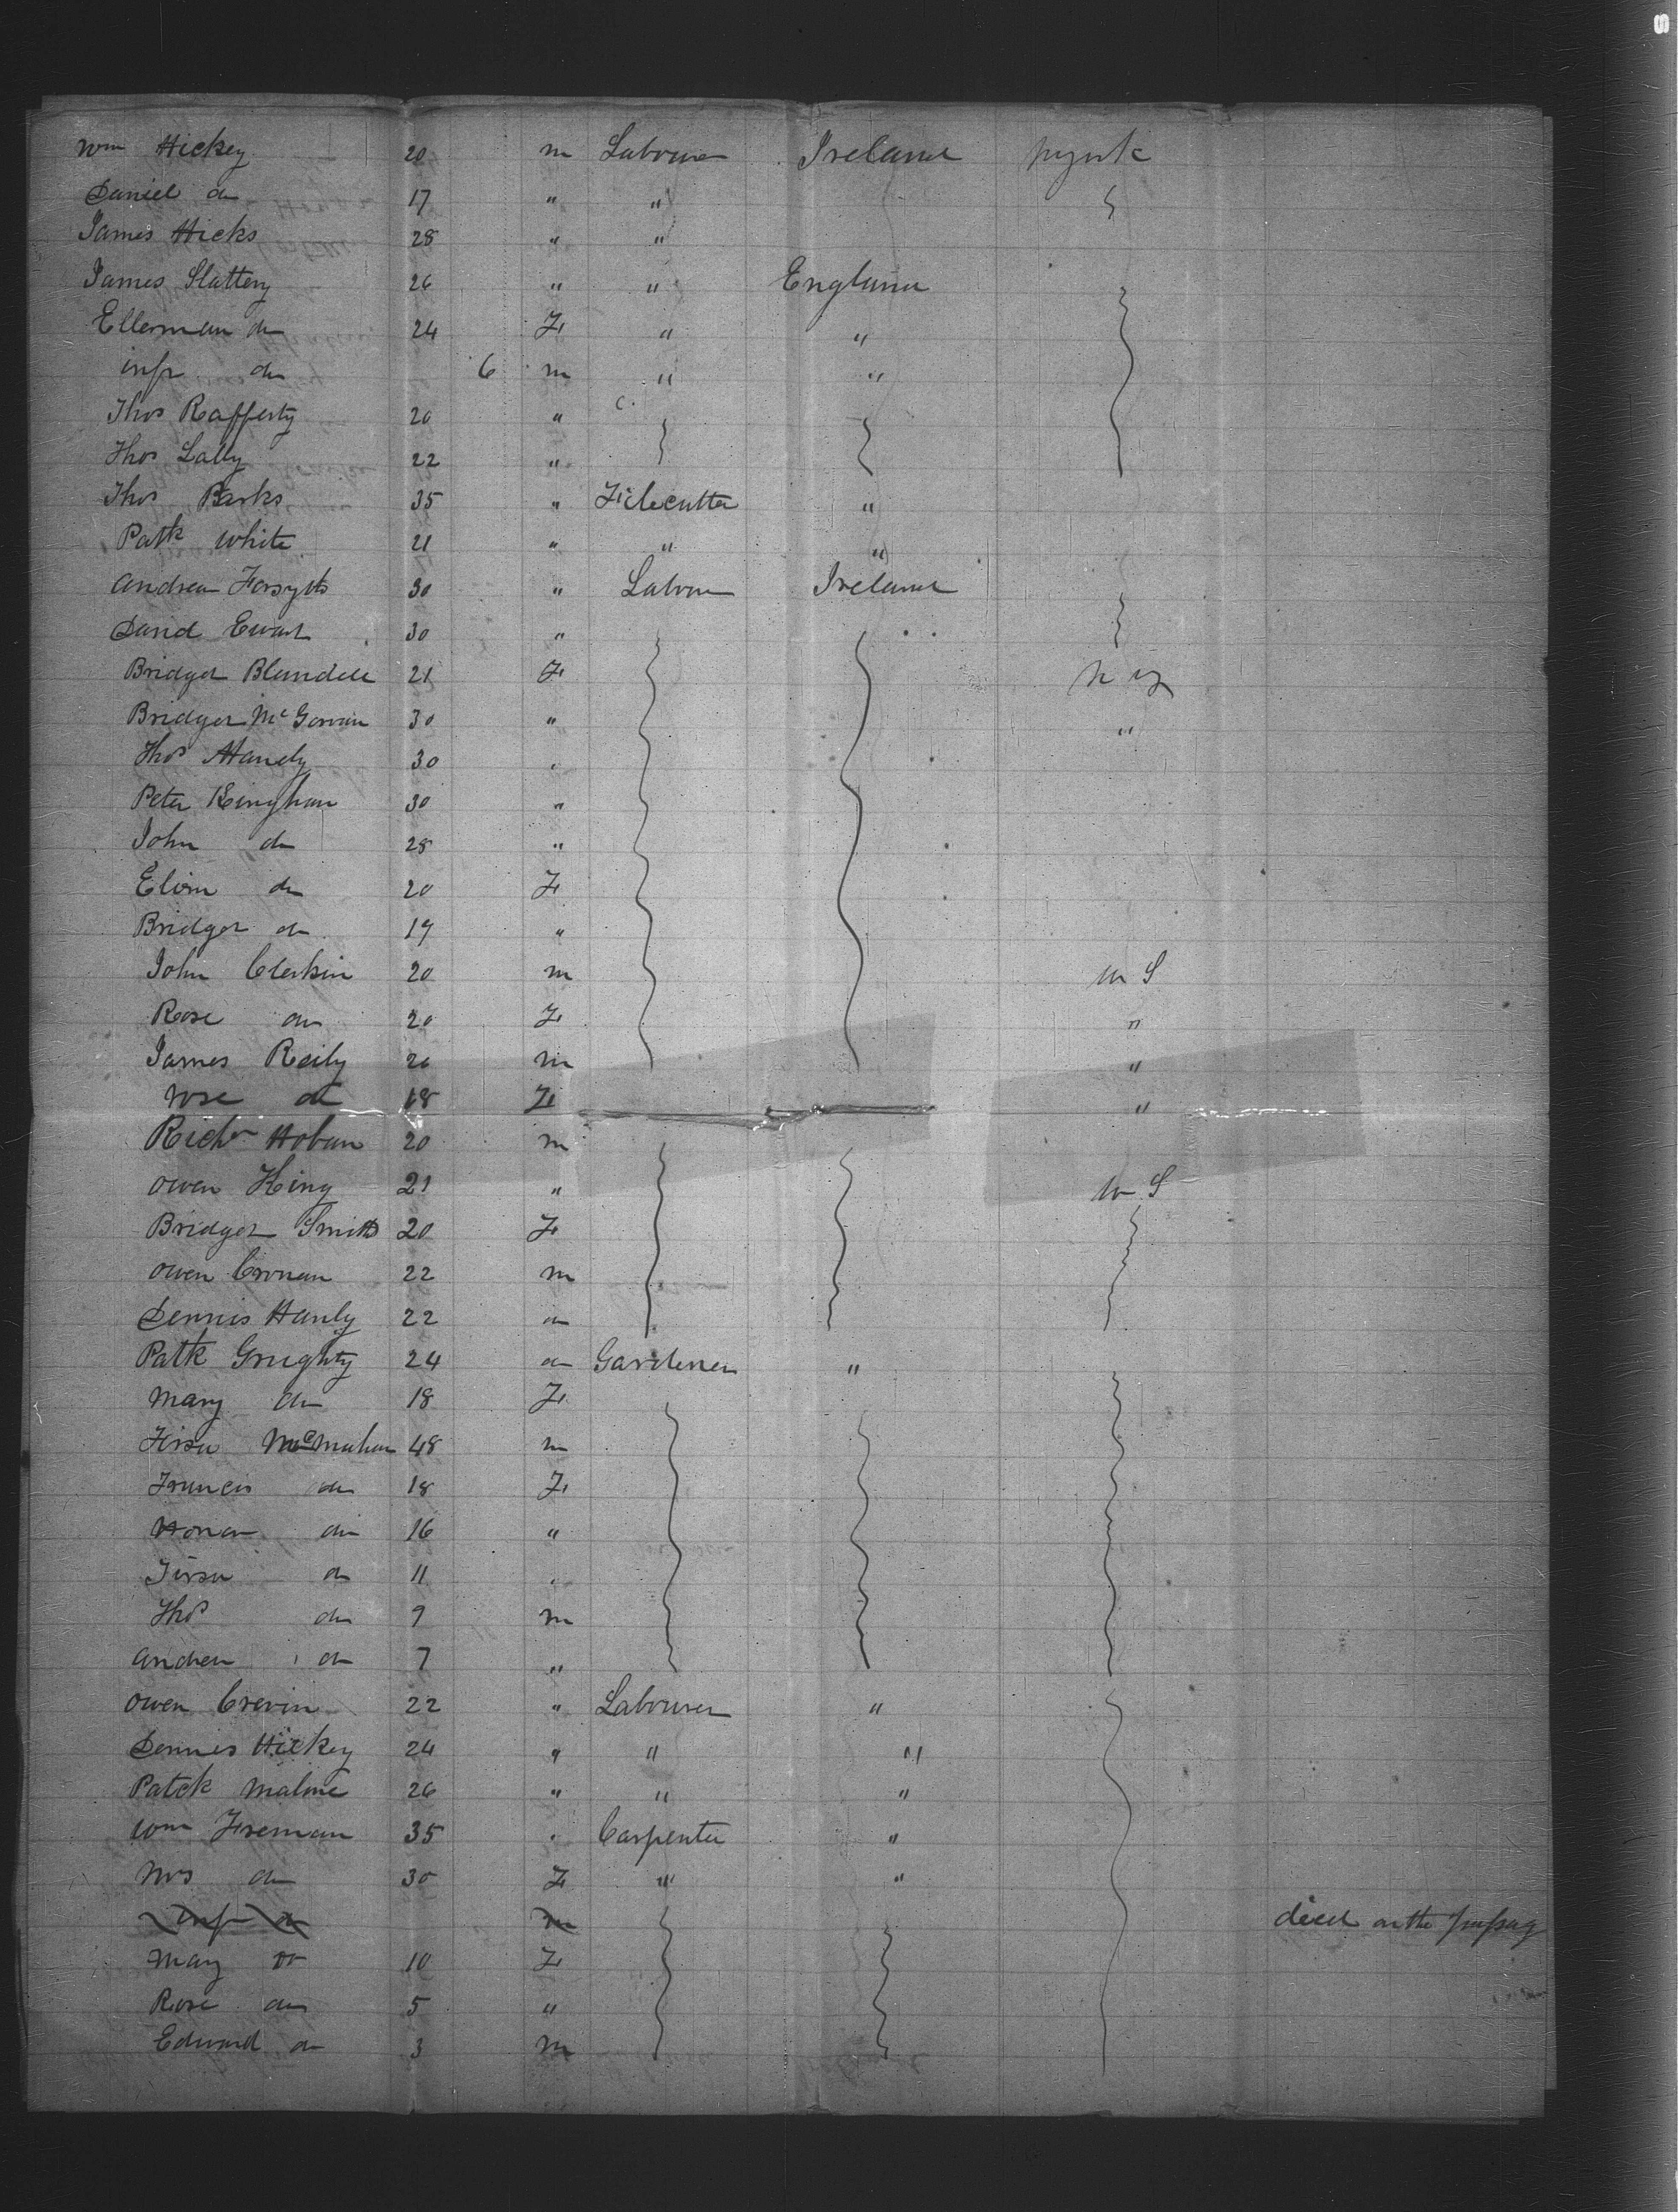 Wm Hickey 20 m Labourer Ireland
Daniel do 17 " "
James Hicks 28 " "
James Slattery 26 " " England
Ellerman do 24 F " "
inft do 6 m " "
Thos Rafferty 20 "
Thos Lally 22 "
Thos Barks 35 " Filecutter "
Patk White 21 " " "
Andrew Forsyth 30 " Labour Ireland
David Ewart 30 "
Bridget Blundell 21 F N Y
Bridget McGorvan 30 " "
Thos Handy 30 "
Peter Kingham 30 "
John do 28 "
do 20 F
Bridget do 19 "
John Clerkin 20 m W S
Rose do 20 F "
James Reily 26 m "
Rose do 18 F "
Richd Hoban 20 m
Owen King 21 " W S
Bridget Smith 20 F
Owen Cronan 22 m
Dennis Hanly 22 do
Patk Grughty 24 do Gardener "
Mary do 18 F
McMahan 48 m
Francis do 18 F
Honor do 16 "
do 11 "
Thos do 9 m
Andrew do 7 "
Owen Crevin 22 " Labourer "
Dennis Hickey 24 " " "
Patck Malone 26 " " "
Wm Freman 35 " Carpenter "
Mrs do 30 F " "
Inft do m died on the passag
Mary do 10 F
Rose do 5 "
Edward do 3 m